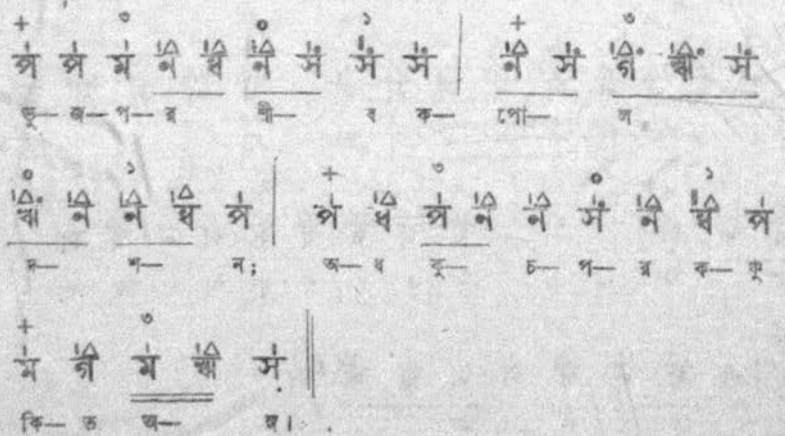 + ৩ ০ ১ + ৩
প প ম ন ধ ন স স স | ন স গ ঋ স
ভু— জ— প— র শী— ব ক— পো— ল
০ ১ + ৩ ০ ১
ঋ ন ন ধ প | প ধ প ন ন স ন ধ প
দ— শ— ন; অ— ধ বু— চ— প— র ক— কু
+ ৩
ম গ ম ঋ স ||
কি— ত অ—